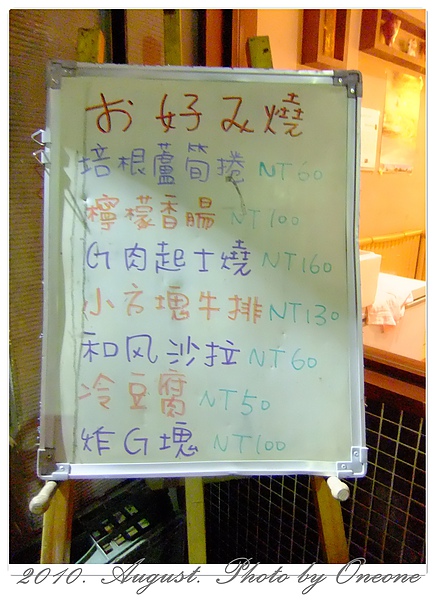 お好み燒
培根蘆筍捲 NT60
檸檬香腸 NT100
G肉起士燒 NT160
小方塊牛排 NT130
和风沙拉 NT60
冷豆腐 NT50
炸G塊 NT100
2010. August. Photo by Oneone